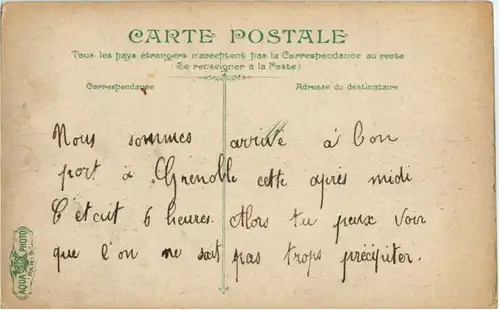 CARTE POSTALE
Tous les pays étrangers n'acceptent pas la Correspondance au recto
(Se renseigner à la Poste)
Correspondance
Adresse du destinataire
Nous sommes arrivé à bon
port à Grenoble cette après midi
C était 6 heures. Alors tu peux voir
que l'on ne sait pas trops précipiter.
AQUA PHOTO
PARIS